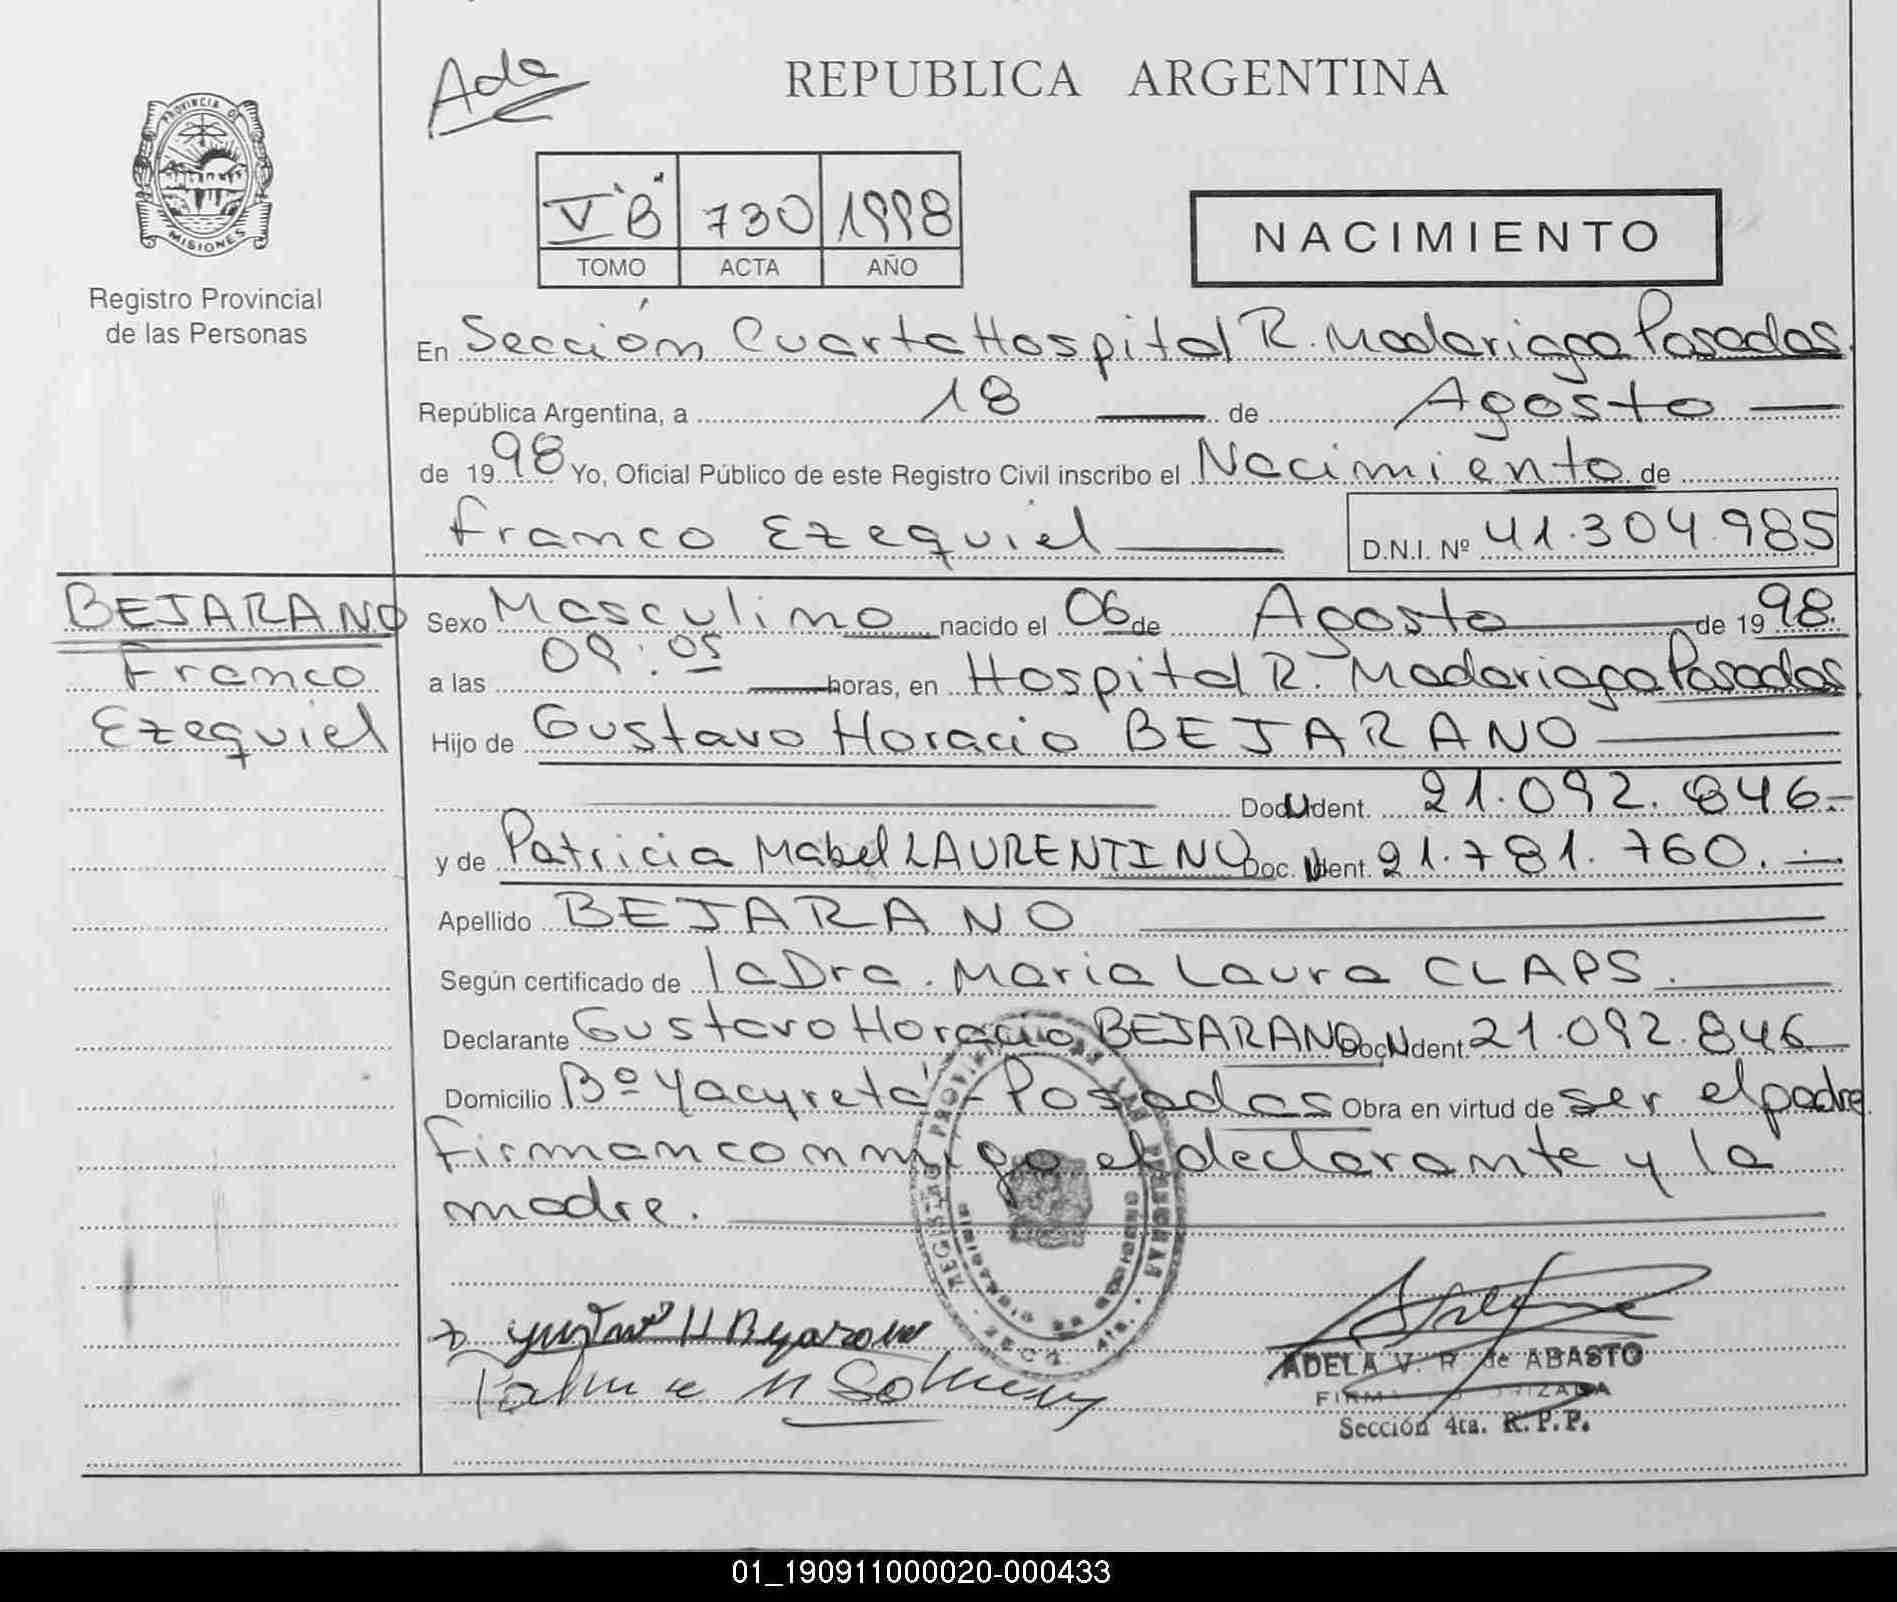 Ada
REPUBLICA ARGENTINA
PROVINCIA DE
MISIONES
Registro Provincial
de las Personas
V "B" 730 1998
TOMO ACTA AÑO
NACIMIENTO
En Sección Cuarta Hospital R. Madariaga Posadas.
República Argentina, a 18 de Agosto
de 1998 Yo, Oficial Público de este Registro Civil inscribo el Nacimiento de
Franco Ezequiel D.N.I. Nº 41.304.985
BEJARANO
Franco
Ezequiel
Sexo Masculino nacido el 06 de Agosto de 1998.
a las 09:05 horas, en Hospital R. Madariaga Posadas
Hijo de Gustavo Horacio BEJARANO
Doc. Ident. 21.092.846.-
y de Patricia Mabel LAURENTINO Doc. Ident. 21.781.760.-
Apellido BEJARANO
Según certificado de la Dra. Maria Laura CLAPS.
Declarante Gustavo Horacio BEJARANO Doc. Ident. 21.092.846
Domicilio Bº Yacyretá - Posadas Obra en virtud de ser el padre
firman conmigo el declarante y la
madre.
REGISTRO PROVINCIAL DE LAS PERSONAS
SECC. 4ta.
H Bejarano
ADELA V. R. de ABASTO
FIRMA AUTORIZADA
Sección 4ta. R.P.P.
01_190911000020-000433